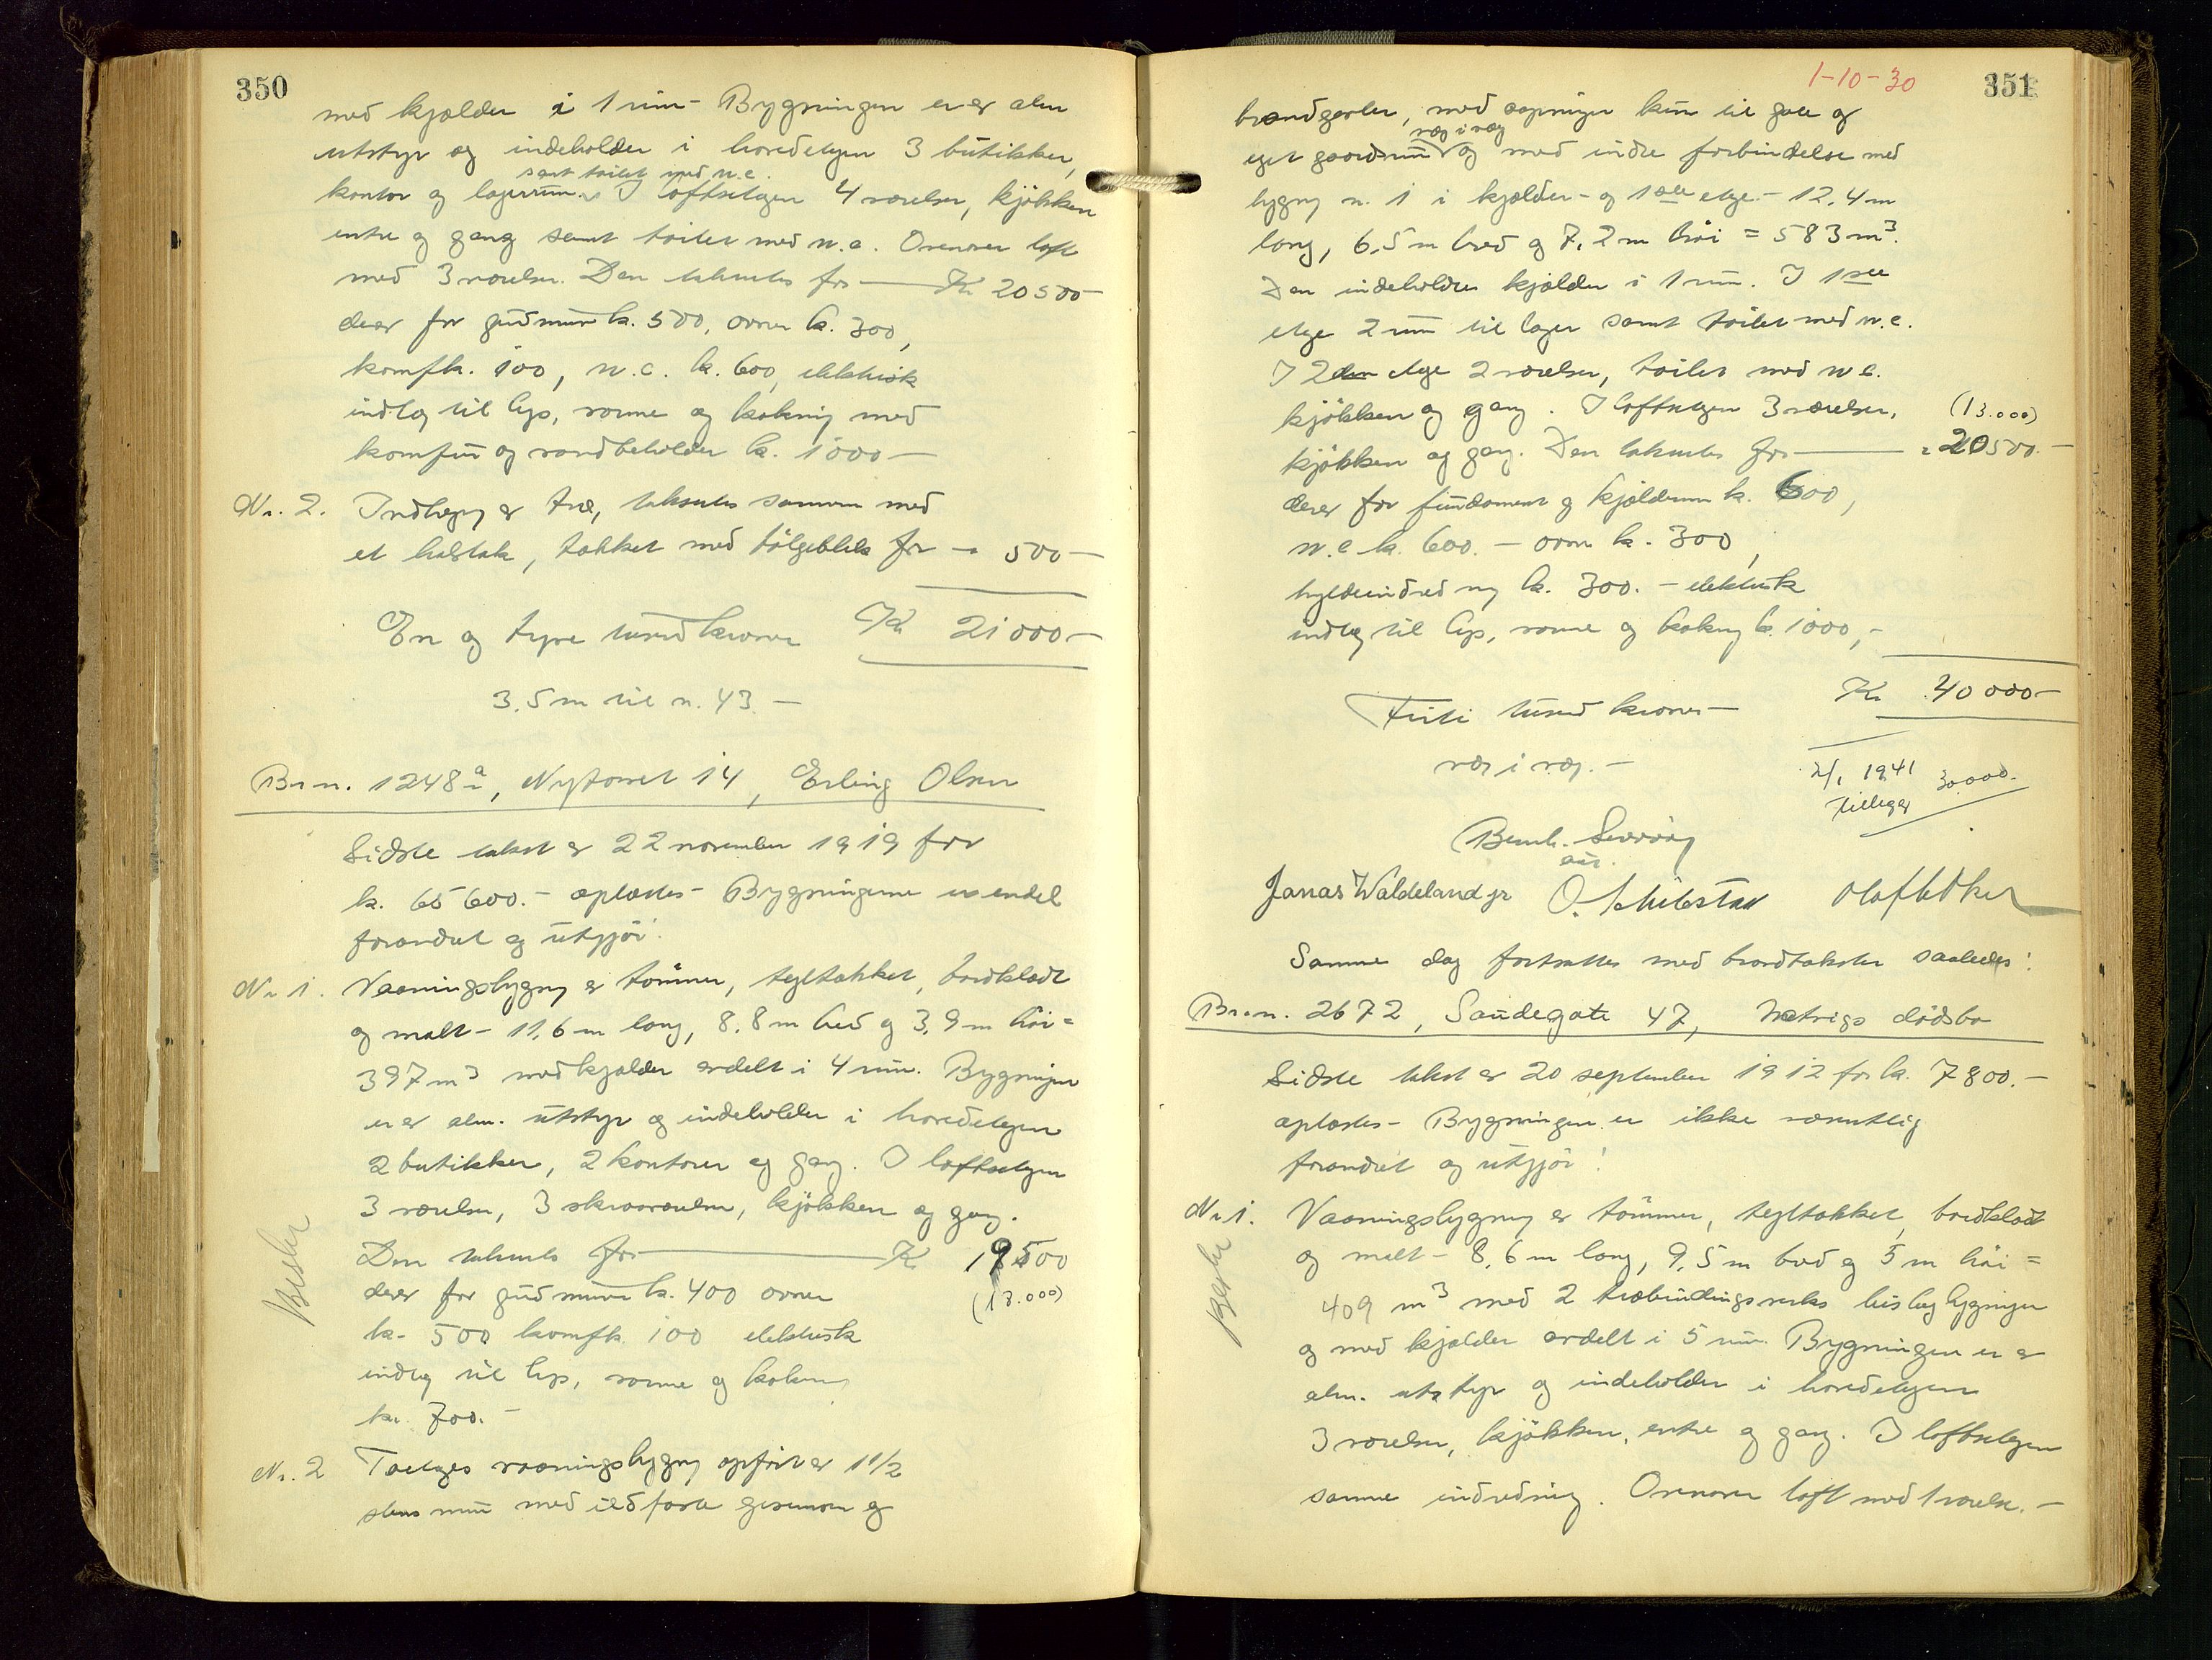 350
med kjælder i 1 rum - Bygningen er av alm
utstyr og indeholder i hovedetagen 3 butikker,
samt toilet med w.c.
kontor og lagerrum. I loftsetagen 4 værelser, kjøkken
entre og gang samt toilet med w.c. Ovenover loft
med 3 værelser. Den takseres for — Kr 20500 -
derav for grundmur k. 500, ovner k. 300,
komfk. 100, w.c. k. 600, elektrisk
indlæg til lys, varme og kokning med
komfur og vandbeholder k. 1000 —
Nr. 2. Indbygn. av træ, takseres sammen med
et halvtak, tækket med bølgeblik for - " 500 -
En og tyve tusend kroner Kr 21000 -
3,5 m til n. 43 -
Br. n. 1248a, Nytorvet 14, Erling Olsen
Sidste takst er 22 november 1919 for
k. 65600. - oplæstes - Bygningerne er endel
forandret og utgjør:
Nr 1. Vaaningsbygning av tømmer, tegltækket, bordklædt
og malt - 11,6 m lang, 8,8 m bred og 3,9 m høi =
397 m3 med kjælder avdelt i 4 rum. Bygningen
er av alm. utstyr og indeholder i hovedetagen
2 butikker, 2 kontorer og gang. I loftsetagen
3 værelser, 3 skraaværelser, kjøkken og gang.
Den takseres for — K 19500
derav for grundmur k. 400 ovner
(13.000)
k. 500 komfk. 100 elektrisk
indlæg til lys, varme og kokning
kr. 700. -
Nr. 2 Toetages vaaningsbygning opført av 1 1/2
stens mur med ildfaste gesimser og
1-10-30
351
brandgavler, med aapninger kun til gate og
væg i væg
eget gaardsrum og med indre forbindelse med
bygn n. 1 i kjælder - og 1ste etage - 12,4 m
lang, 6,5 m bred og 7,2 m høi = 583 m3.
Den indeholder kjælder i 1 rum. I 1ste
etage 2 rum til lager samt toilet med w.c.
I 2den etage 2 værelser, toilet med w c.
kjøkken og gang. I loftsetagen 3 værelser,
(13.000)
kjøkken og gang. Den takseres for — " 20500. -
derav for fundament og kjældermur k. 600,
w.c k. 600. - ovner k. 300,
hyldeindredning k. 300. - elektrisk
indlæg til lys, varme og kokning k. 1000, -
Firti tusend kroner - Kr 40000 -
væg i væg. -
2/1 1941 30.000.-
tillegg
Bernh.
Jonas Waldeland jr O. Schibstad Olaf
Samme dag fortsattes med brandtakster saaledes:
Br. n. 2672, Saudegate 47, dødsbo
Sidste takst er 20 september 1912 for k. 7800. -
oplæstes - Bygningen er ikke væsentlig
forandret og utgjør:
Nr 1. Vaaningsbygning av tømmer, tegltækket, bordklædt
og malt - 8,6 m lang, 9,5 m bred og 5 m høi =
409 m3 med 2 træbindingsverks bislagbygninger
og med kjælder avdelt i 5 rum. Bygningen er av
alm. utstyr og indeholder i hovedetagen
3 værelser, kjøkken, entre og gang. I loftsetagen
samme indredning. Ovenover loft med 1 værelse. -